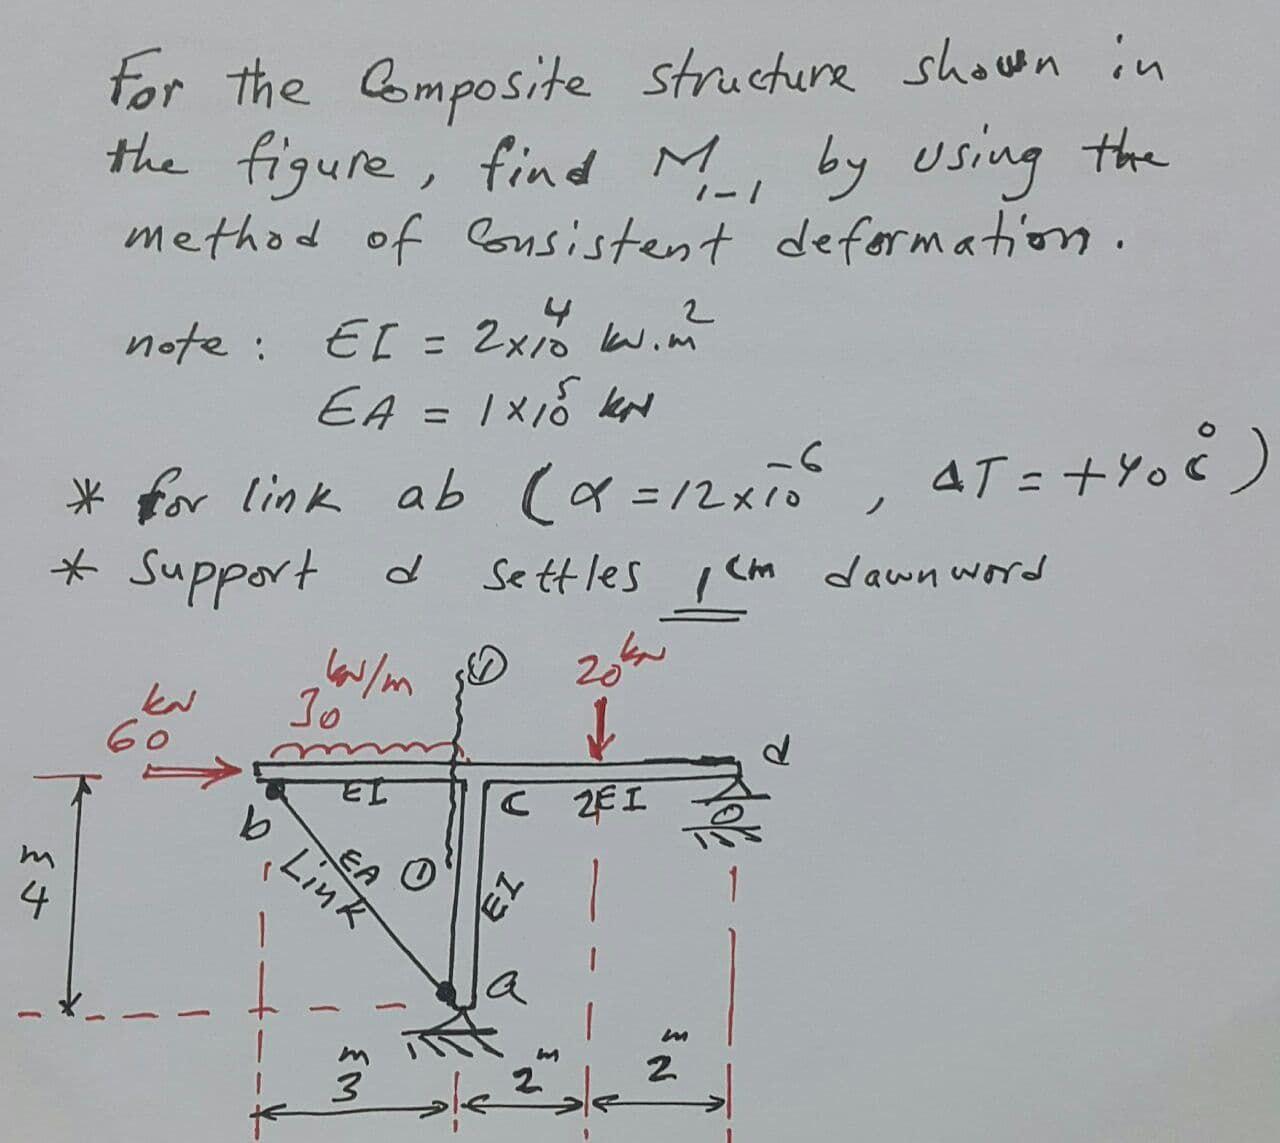 For the Composite structure shown in
the figure, find M₁₋₁ by using the
method of Consistent deformation.
note: EI = 2×10⁴ kN.m²
EA = 1×10⁵ kN
* for link ab (α = 12×10⁻⁶, ΔT = +40 c°)
* Support d settles 1 cm dawnword
60 kN
30 kN/m
1
20 kN
d
b
EI
c
2EI
m
4
Link
EA
1
EI
a
m
3
m
2
m
2